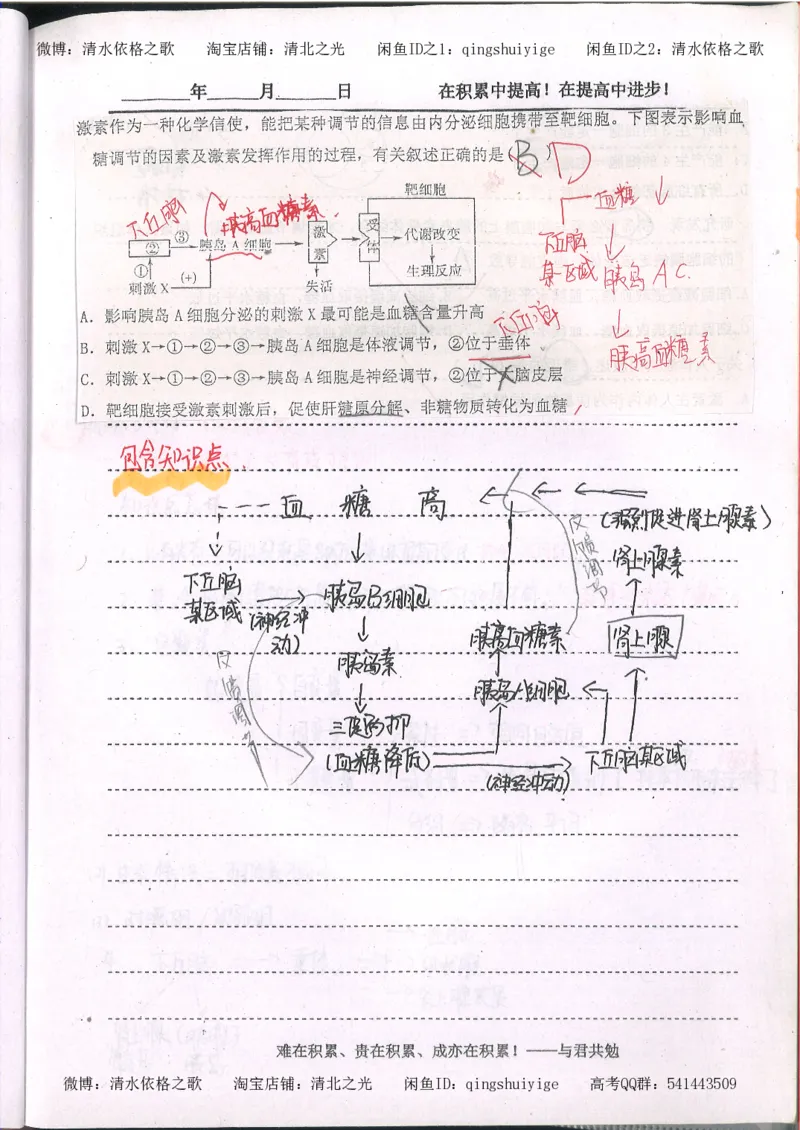 微博：清水依格之歌 淘宝店铺：清北之光 闲鱼ID之1：qingshuiyige 闲鱼ID之2：清水依格之歌
年 月 日 在积累中提高！在提高中进步！
激素作为一种化学信使，能把某种调节的信息由内分泌细胞携带至靶细胞。下图表示影响血
糖调节的因素及激素发挥作用的过程，有关叙述正确的是（B）D
靶细胞
血糖↓
下丘脑
胰高血糖素
② ③ 胰岛 A 细胞 激素 受体 代谢改变
下丘脑
某区域 胰岛 A C.
① 生理反应
刺激 X (+) 失活
胰高血糖素
A. 影响胰岛 A 细胞分泌的刺激 X 最可能是血糖含量升高
下丘脑
B. 刺激 X→①→②→③→胰岛 A 细胞是体液调节，②位于垂体
C. 刺激 X→①→②→③→胰岛 A 细胞是神经调节，②位于大脑皮层
D. 靶细胞接受激素刺激后，促使肝糖原分解、非糖物质转化为血糖
包含知识点
血 糖 高
促进肾上腺素）
反馈调节
肾上腺素
下丘脑
某区域
(神经冲动)
胰岛B细胞
胰高血糖素
肾上腺
胰岛素
反馈调节
胰岛A细胞
(血糖降后)
下丘脑某区域
(神经冲动)
难在积累、贵在积累、成亦在积累！——与君共勉
微博：清水依格之歌 淘宝店铺：清北之光 闲鱼ID：qingshuiyige 高考QQ群：541443509